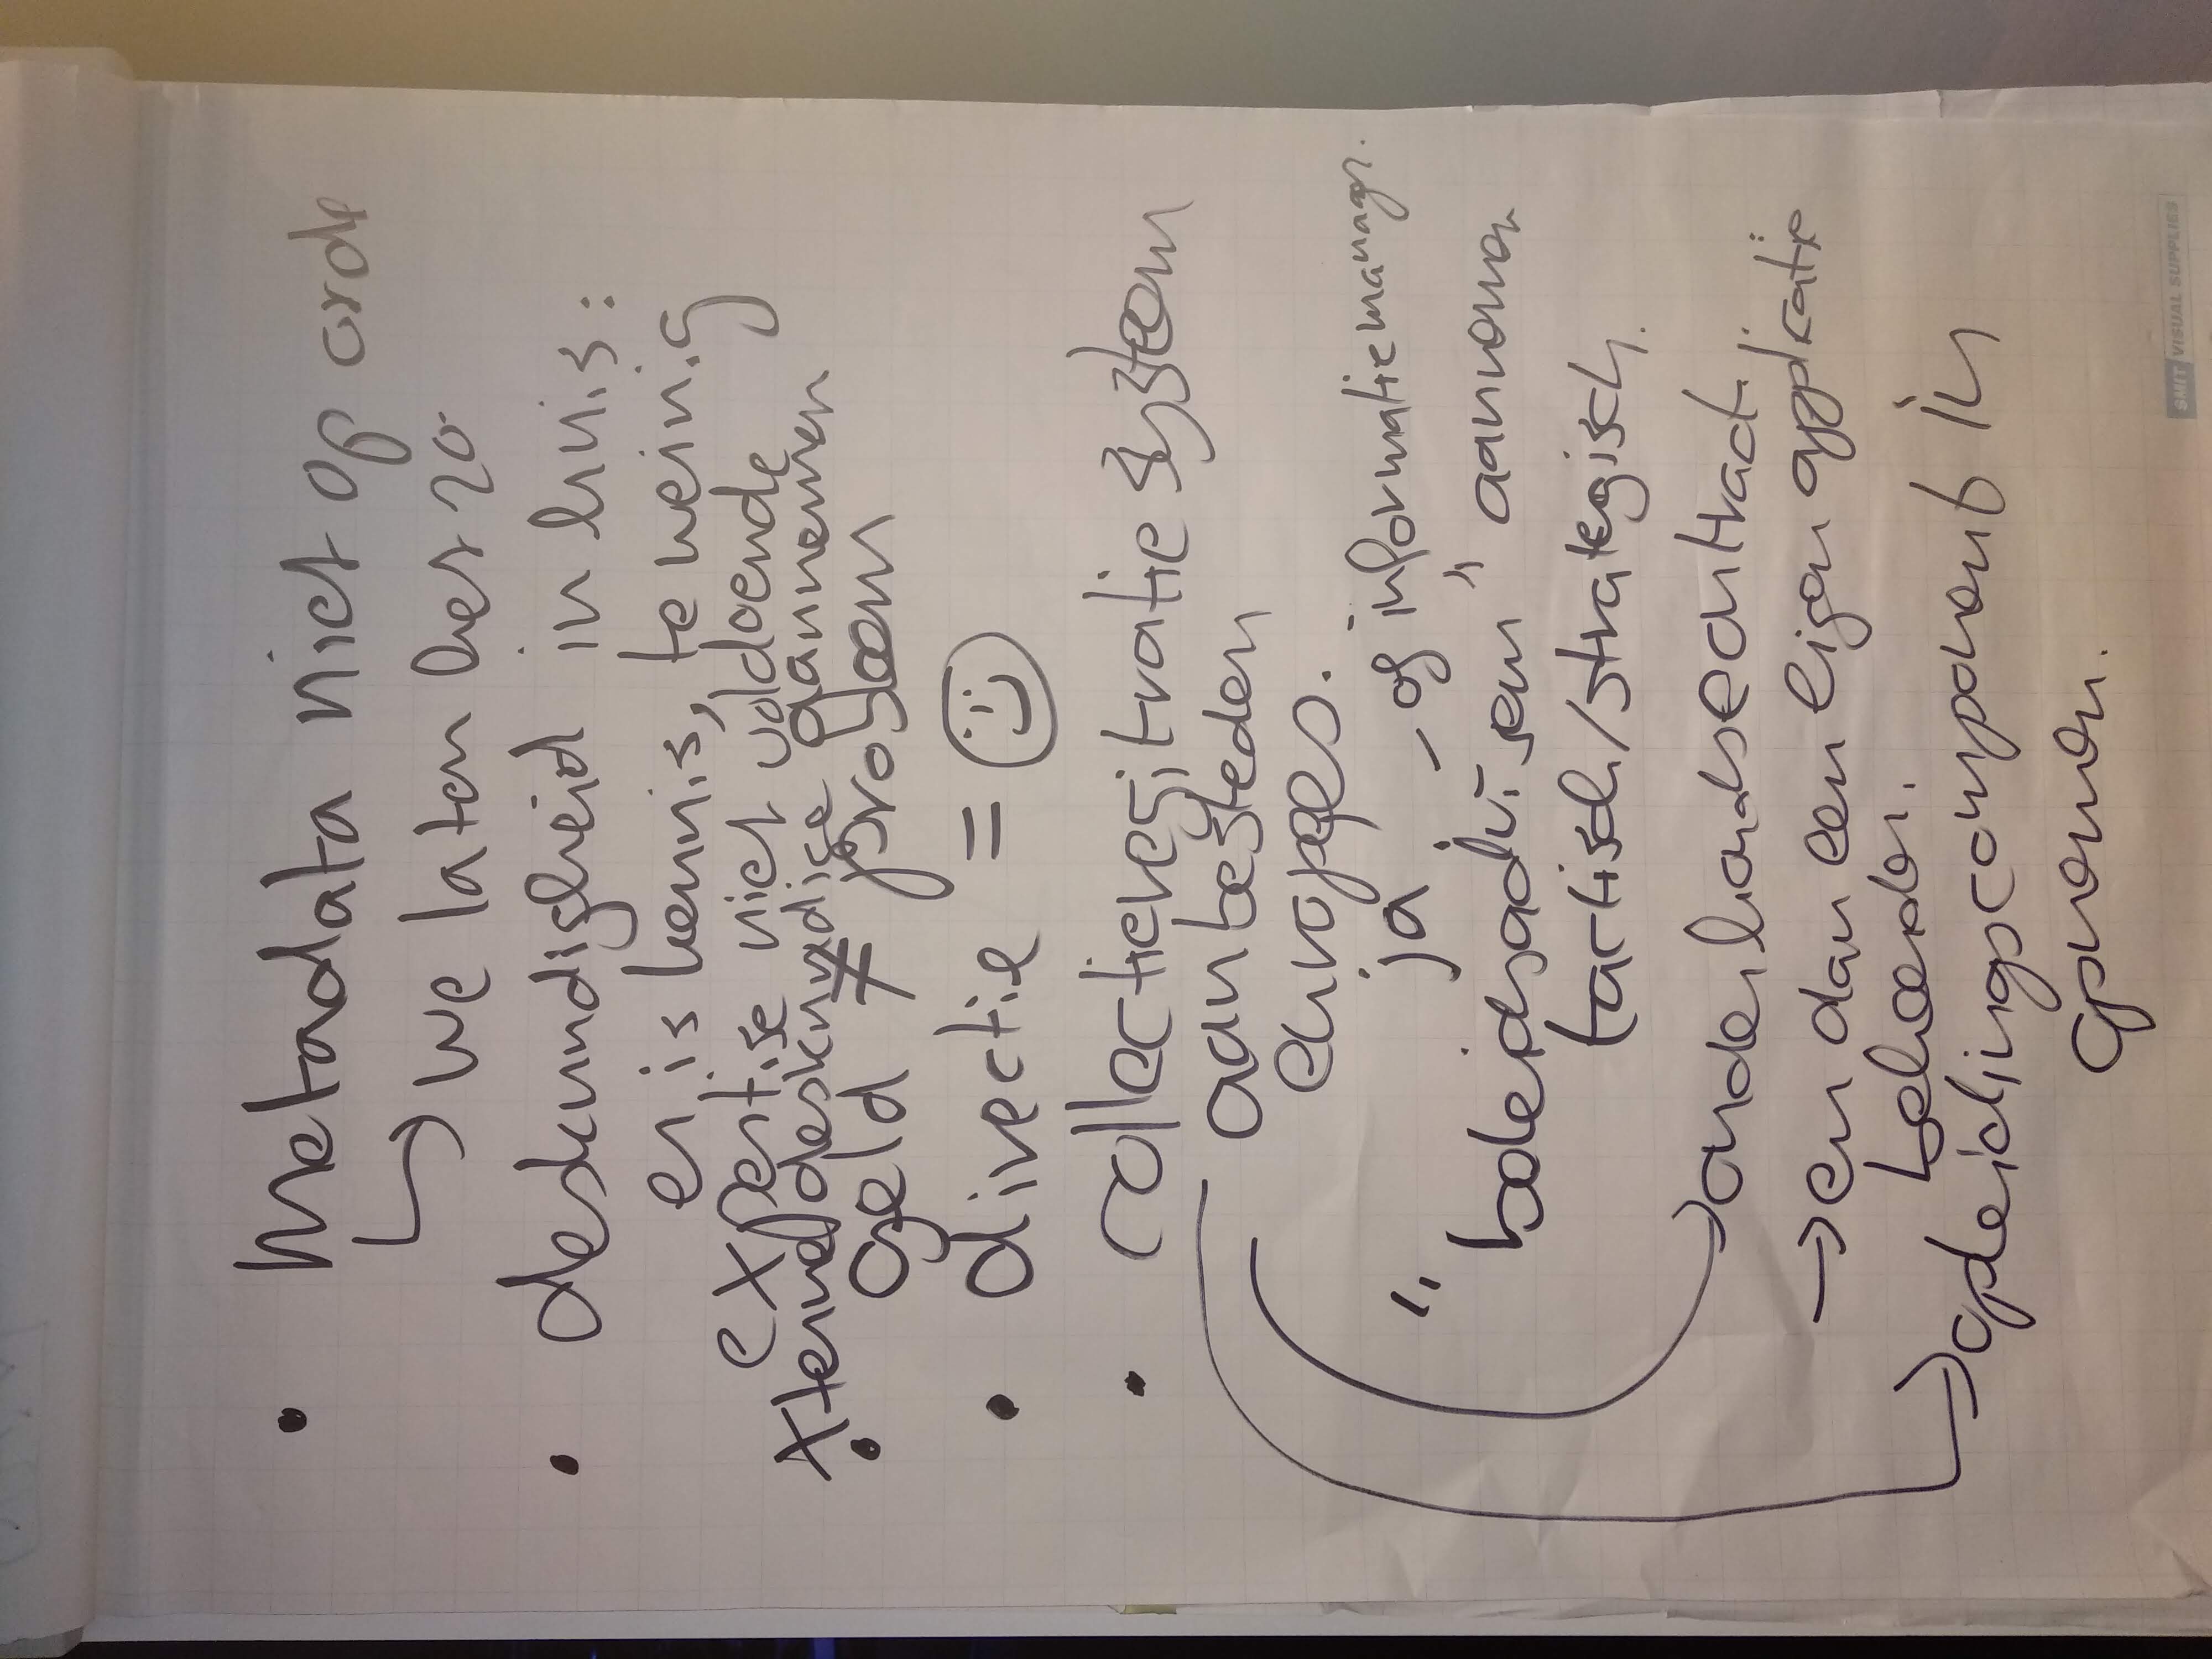 • Metadata niet op orde
↳ we laten het zo
• deskundigheid in huis:
er is kennis, te weinig
expertise niet voldoende
x externe deskundige aannemen
• geld ≠ probleem
• directie = ☺
• collectieregistratie systeem
aanbesteden
europees.
ja - of informatiemanagr.
" beleidsadviseur " aannemen
tactisch/strategisch.
→ onderhoudscontract
→ en dan een eigen applicatie
beheerder.
→ opleidingscomponent in
opnemen.
SMIT VISUAL SUPPLIES